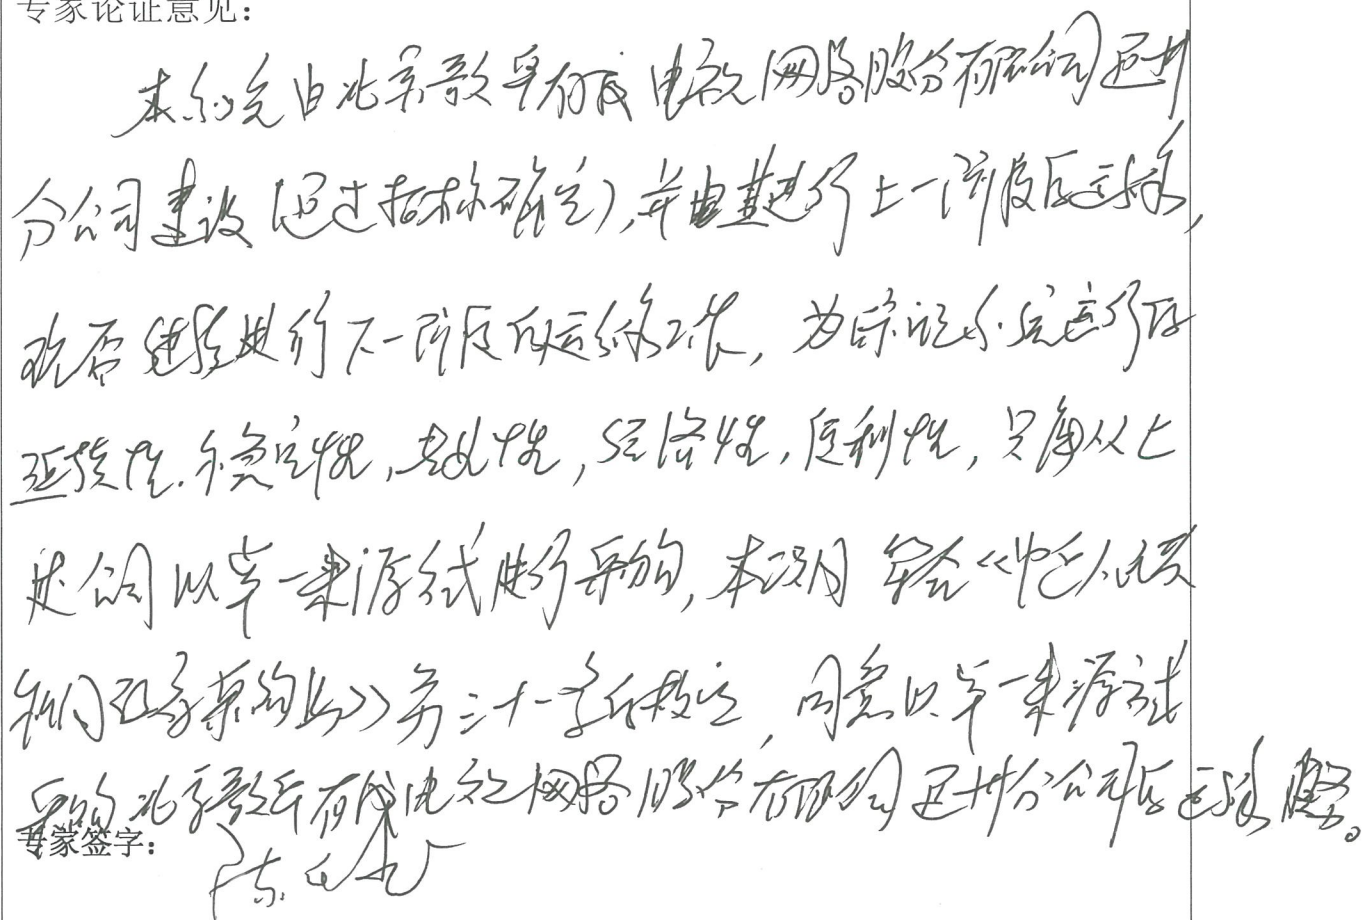 专家论证意见：
本系统由北京歌华有线电视网络股份有限公司延庆
分公司建设（通过招标确定），并且其进行上一阶段的运维，
现需继续进行下一阶段的运维工作，为保证系统运行的
延续性、稳定性，安全性，经济性，便利性，只能从上
述公司以单一来源方式进行采购，本项目符合《中华人民共
和国政府采购法》第三十一条的规定，同意以单一来源方式
采购北京歌华有线电视网络股份有限公司延庆分公司的运维服务。
专家签字：